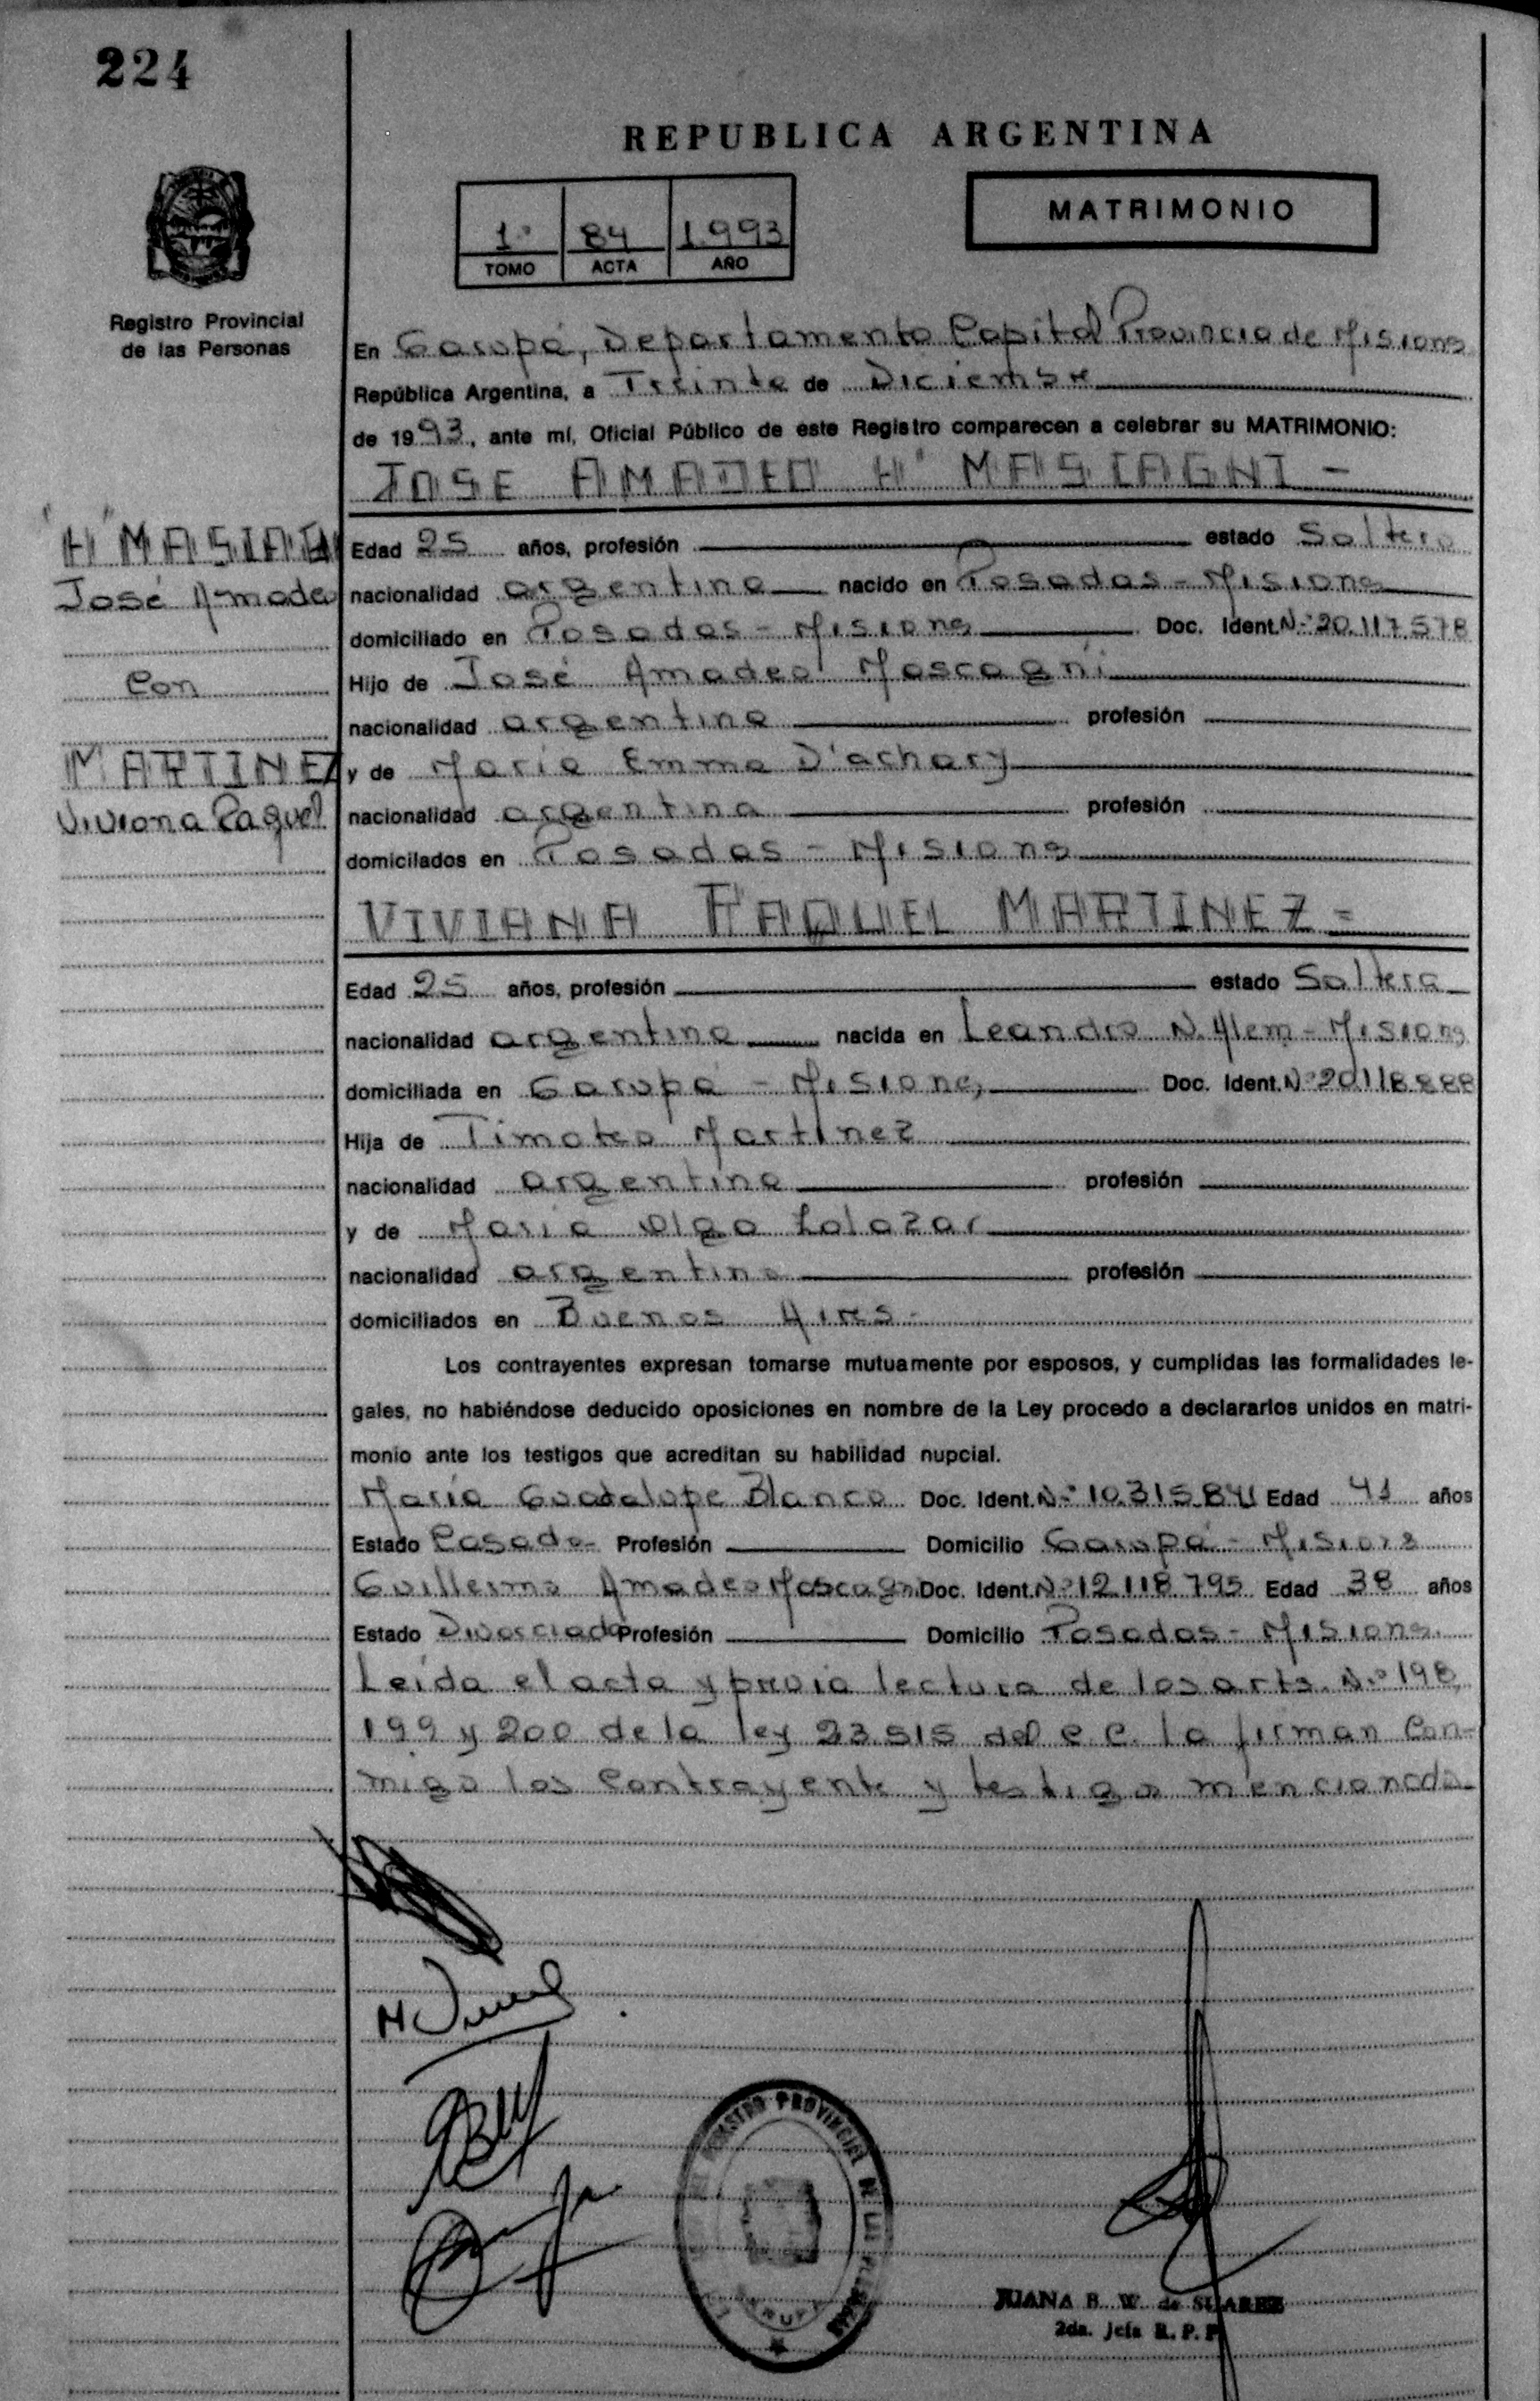 224
REPUBLICA ARGENTINA
MATRIMONIO
1º 84 1993
TOMO ACTA AÑO
Registro Provincial
de las Personas
En Garupá, Departamento Capital Provincia de Misiones
República Argentina, a Treinta de Diciembre
de 1993, ante mí, Oficial Público de este Registro comparecen a celebrar su MATRIMONIO:
JOSE AMADEO "H" MASCAGNI -
"H" 
José Amadeo
Con
MARTINEZ
Viviana Raquel
Edad 25 años, profesión estado Soltero
nacionalidad argentina nacido en Posadas - Misiones
domiciliado en Posadas - Misiones Doc. Ident. Nº 20.117.578
Hijo de José Amadeo Mascagni
nacionalidad argentina profesión
y de María Emma D'achary
nacionalidad argentina profesión
domicilados en Posadas - Misiones
VIVIANA RAQUEL MARTINEZ =
Edad 25 años, profesión estado Soltera
nacionalidad argentina nacida en Leandro N. Alem - Misiones
domiciliada en Garupá - Misiones Doc. Ident. Nº 20.118.888
Hija de Timoteo Martínez
nacionalidad argentina profesión
y de María Olga Zalazar
nacionalidad argentina profesión
domiciliados en Buenos Aires -
Los contrayentes expresan tomarse mutuamente por esposos, y cumplidas las formalidades le-
gales, no habiéndose deducido oposiciones en nombre de la Ley procedo a declararlos unidos en matri-
monio ante los testigos que acreditan su habilidad nupcial.
María Guadalupe Blanco Doc. Ident. Nº 10.315.841 Edad 41 años
Estado Casada - Profesión Domicilio Garupá - Misiones
Guillermo Amadeo Mascagni Doc. Ident. Nº 12.118.795 Edad 38 años
Estado Divorciado Profesión Domicilio Posadas - Misiones.
Leída el acta y previa lectura de los arts. Nº 198,
199 y 200 de la ley 23.515 del C.C. la firman Con-
migo los Contrayente y testigos mencionado-
REGISTRO PROVINCIAL DE LAS PERSONAS
JUANA B. W. de SUAREZ
2da. Jefa R. P. P.